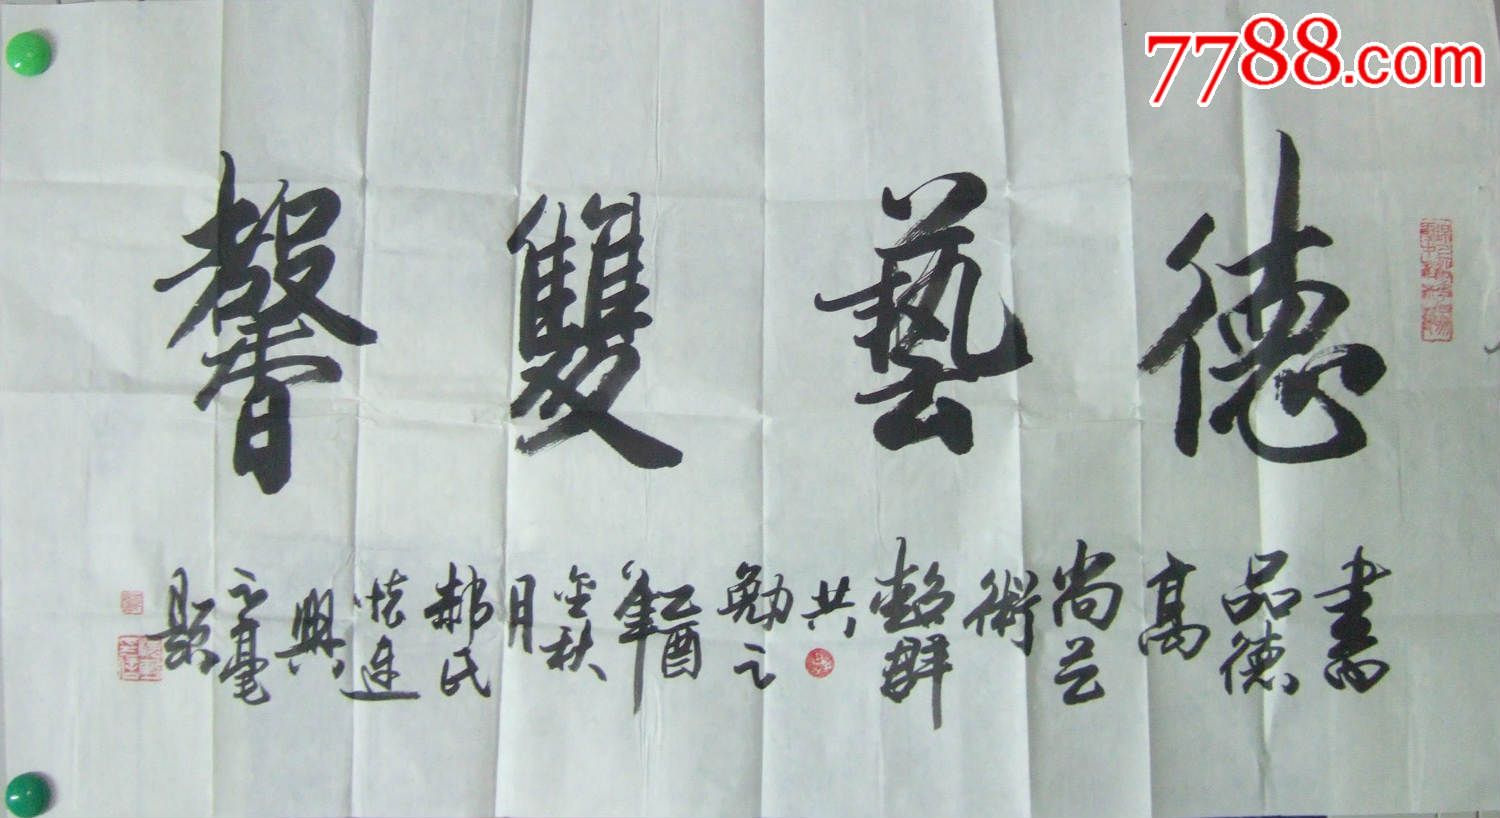 7788.com
德藝雙馨
書為
品德
高
尚芸
術
超群
共
勉之
乙酉
年
金秋
月
郝氏
懷連
興
元毫
題